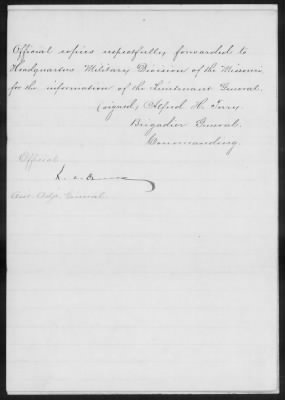 Official copies respectfully forwarded to
Headquarters Military Division of the Missouri
for the information of the Lieutenant General.
(signed) Alfred H. Terry.
Brigadier General.
Commanding.
Official
Asst. Adjt. General.